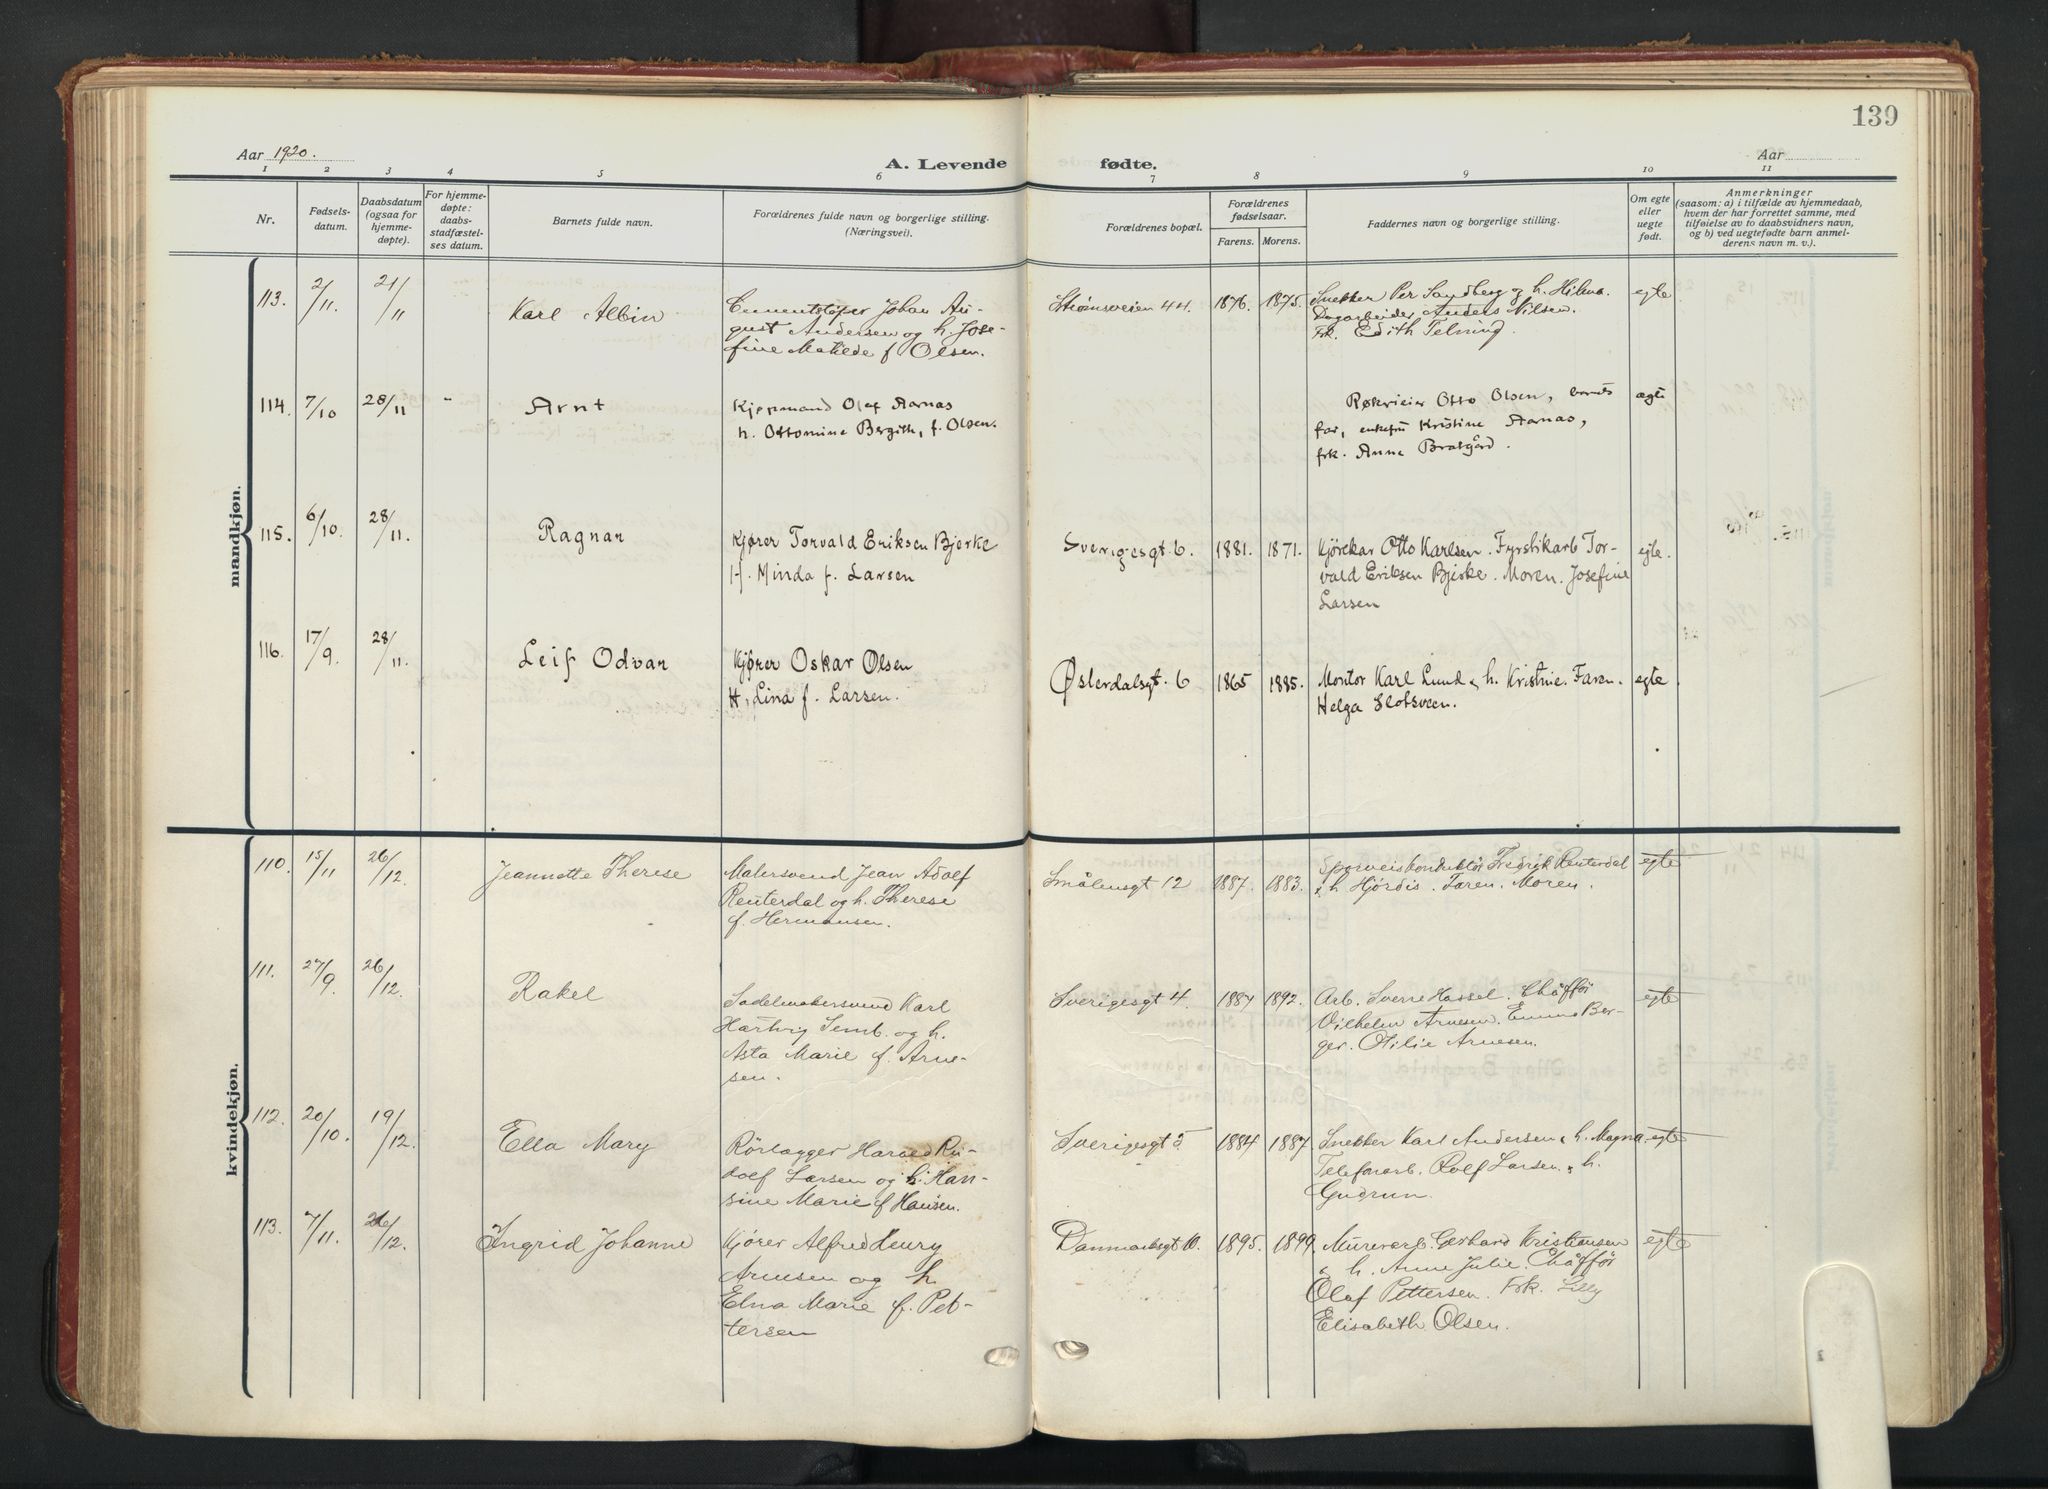 139
Aar 1920.
A. Levende
fødte.
Aar
1 2 3 4 5 6 7 8 9 10 11
Nr.
Fødsels-
datum.
Daabsdatum
(ogsaa for
hjemme-
døpte).
For hjemme-
døpte:
daabs-
stadfæstel-
ses datum.
Barnets fulde navn.
Forældrenes fulde navn og borgerlige stilling.
(Næringsvei).
Forældrenes bopæl.
Forældrenes
fødselsaar.
Farens. Morens.
Faddernes navn og borgerlige stilling.
Om egte
eller
uegte
født.
Anmerkninger
(saasom: a) i tilfælde av hjemmedaab,
hvem der har forrettet samme, med
tilføielse av to daabsvidners navn,
og b) ved uegtefødte barn anmel-
derens navn m. v.).
mandkjøn.
113. 2/11 21/11 Karl Albin
Cementstøper Johan Au-
gust Andersen og h. Jose-
fine Matilde f Olsen.
Strømsveien 44 1876. 1875.
Snekker Per Sandberg og h. Hilma.
Dagarbeider Anders Nilsen.
Frk. Edith Telning
egte
114. 7/10 28/11 " Arnt
Kjøpmand Olaf Aarnas
h. Ottomine Bergith, f. Olsen.
Røkrieier Otto Olsen, barnets
far, enkefru Kristine Aarnas,
frk. Anne Bratgård.
ægte
115. 6/10 28/11. Ragnar
Kjører Torvald Eriksen Bjerke
H. Minda f. Larsen
Sverigesgt. 6. 1881. 1871.
Kjørekar Otto Karlsen. Fyrstikarb Tor-
vald Eriksen Bjerke. Moren. Josefine
Larsen
egte.
116. 17/9. 28/11. Leif Odvar
Kjører Oskar Olsen
H. Lina f. Larsen.
Østerdalsgt. 6 1865 1885.
Montør Karl Lund & h. Kristine. Faren.
Helga Slotsveen.
egte
kvindekjøn.
110. 15/11 26/12. Jeannette Therese
Malersvend Jean Adolf
Renterdal og h. Therese
f. Hermansen.
Smålensgt 12 1887. 1883.
Sporveiskonduktør Fredrik Renterdal
& h. Hjørdis. Faren. Moren.
egte
111. 27/9. 26/12. Rakel
Sadelmakersvend Karl
Hartvig Semb. og h.
Asta Marie f. Arne-
sen.
Sverigesgt 4. 1887 1892.
Arb. Sverre Hassel. Chåffør
Vilhelm Arnesen. Emma Ber-
ger. Otilie Arnesen.
egte
112. 20/10. 19/12. Ella Mary
Rørlægger Harald Ru-
dolf Larsen og h. Han-
sine Marie f Hansen.
Sverigesgt 5 1884 1887.
Snekker Karl Andersen & h. Magna.
Telefonarb. Rolf Larsen & h.
Gudrun.
egte
113. 7/11. 26/12. Ingrid Johanne
Kjører Alfred Henry
Arnesen og h.
Elna Marie f. Pet-
tersen
Danmarksgt 10. 1895. 1899.
Murerarb. Gerhard Kristiansen
& h. Anne Julie. Chåffør
Olaf Pettersen. Frk. Lilly
Elisabeth Olsen.
egte